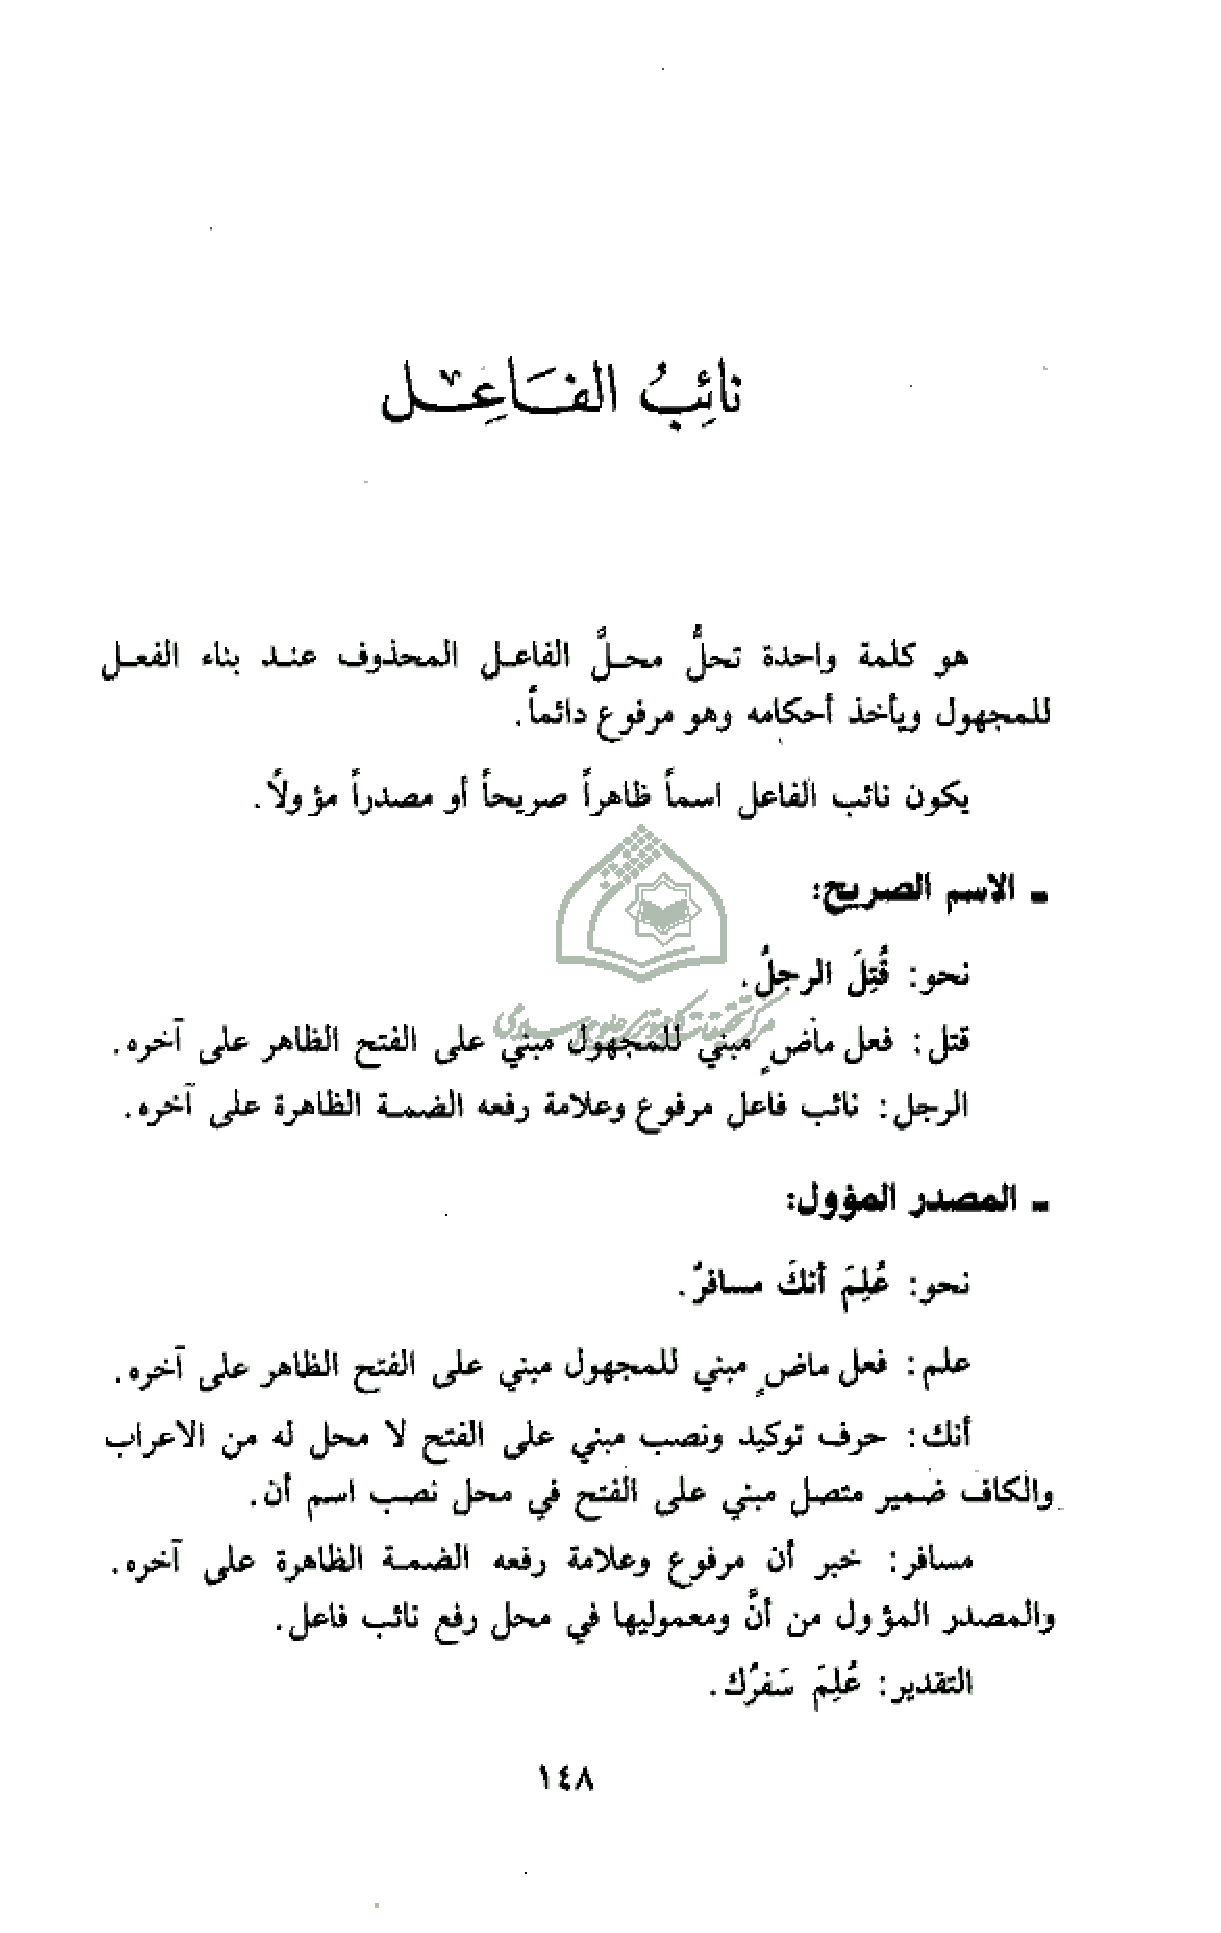 نائِبُ الفَاعِل
هو كلمة واحدة تحلُّ محلَّ الفاعل المحذوف عند بناء الفعل
للمجهول ويأخذ أحكامه وهو مرفوع دائماً.
يكون نائب الفاعل اسماً ظاهراً صريحاً أو مصدراً مؤولاً.
ـ الاسم الصريح:
نحو: قُتِلَ الرجلُ.
مركز تحقيقات كامپيوتری علوم اسلامی
قتل: فعل ماضٍ مبني للمجهول مبني على الفتح الظاهر على آخره.
الرجل: نائب فاعل مرفوع وعلامة رفعه الضمة الظاهرة على آخره.
ـ المصدر المؤول:
نحو: عُلِمَ أنكَ مسافرٌ.
علم: فعل ماضٍ مبني للمجهول مبني على الفتح الظاهر على آخره.
أنك: حرف توكيد ونصب مبني على الفتح لا محل له من الاعراب
والكاف ضمير متصل مبني على الفتح في محل نصب اسم أن.
مسافر: خبر أن مرفوع وعلامة رفعه الضمة الظاهرة على آخره.
والمصدر المؤول من أنَّ ومعموليها في محل رفع نائب فاعل.
التقدير: عُلِمَ سَفرُك.
١٤٨